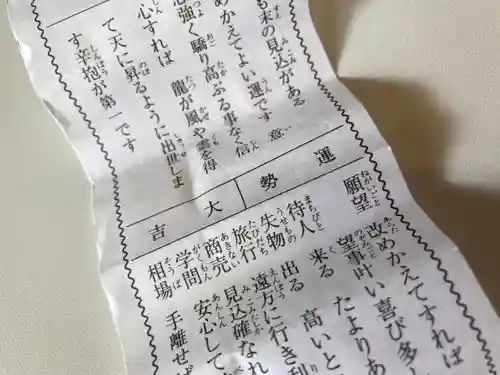 も末の見込がある
めかえてよい運です
心強く驕り高ぶる事なく信
心すれば 龍が風や雲を得
て天に昇るように出世しま
す辛抱が第一です
運勢
大吉
願望 改めかえてすれば
望事叶い喜び多し
待人 来る たよりあ
失物 出る 高いと
旅行 遠方に行き利
商売 見込確なれ
学問 安心して
相場 手離せば